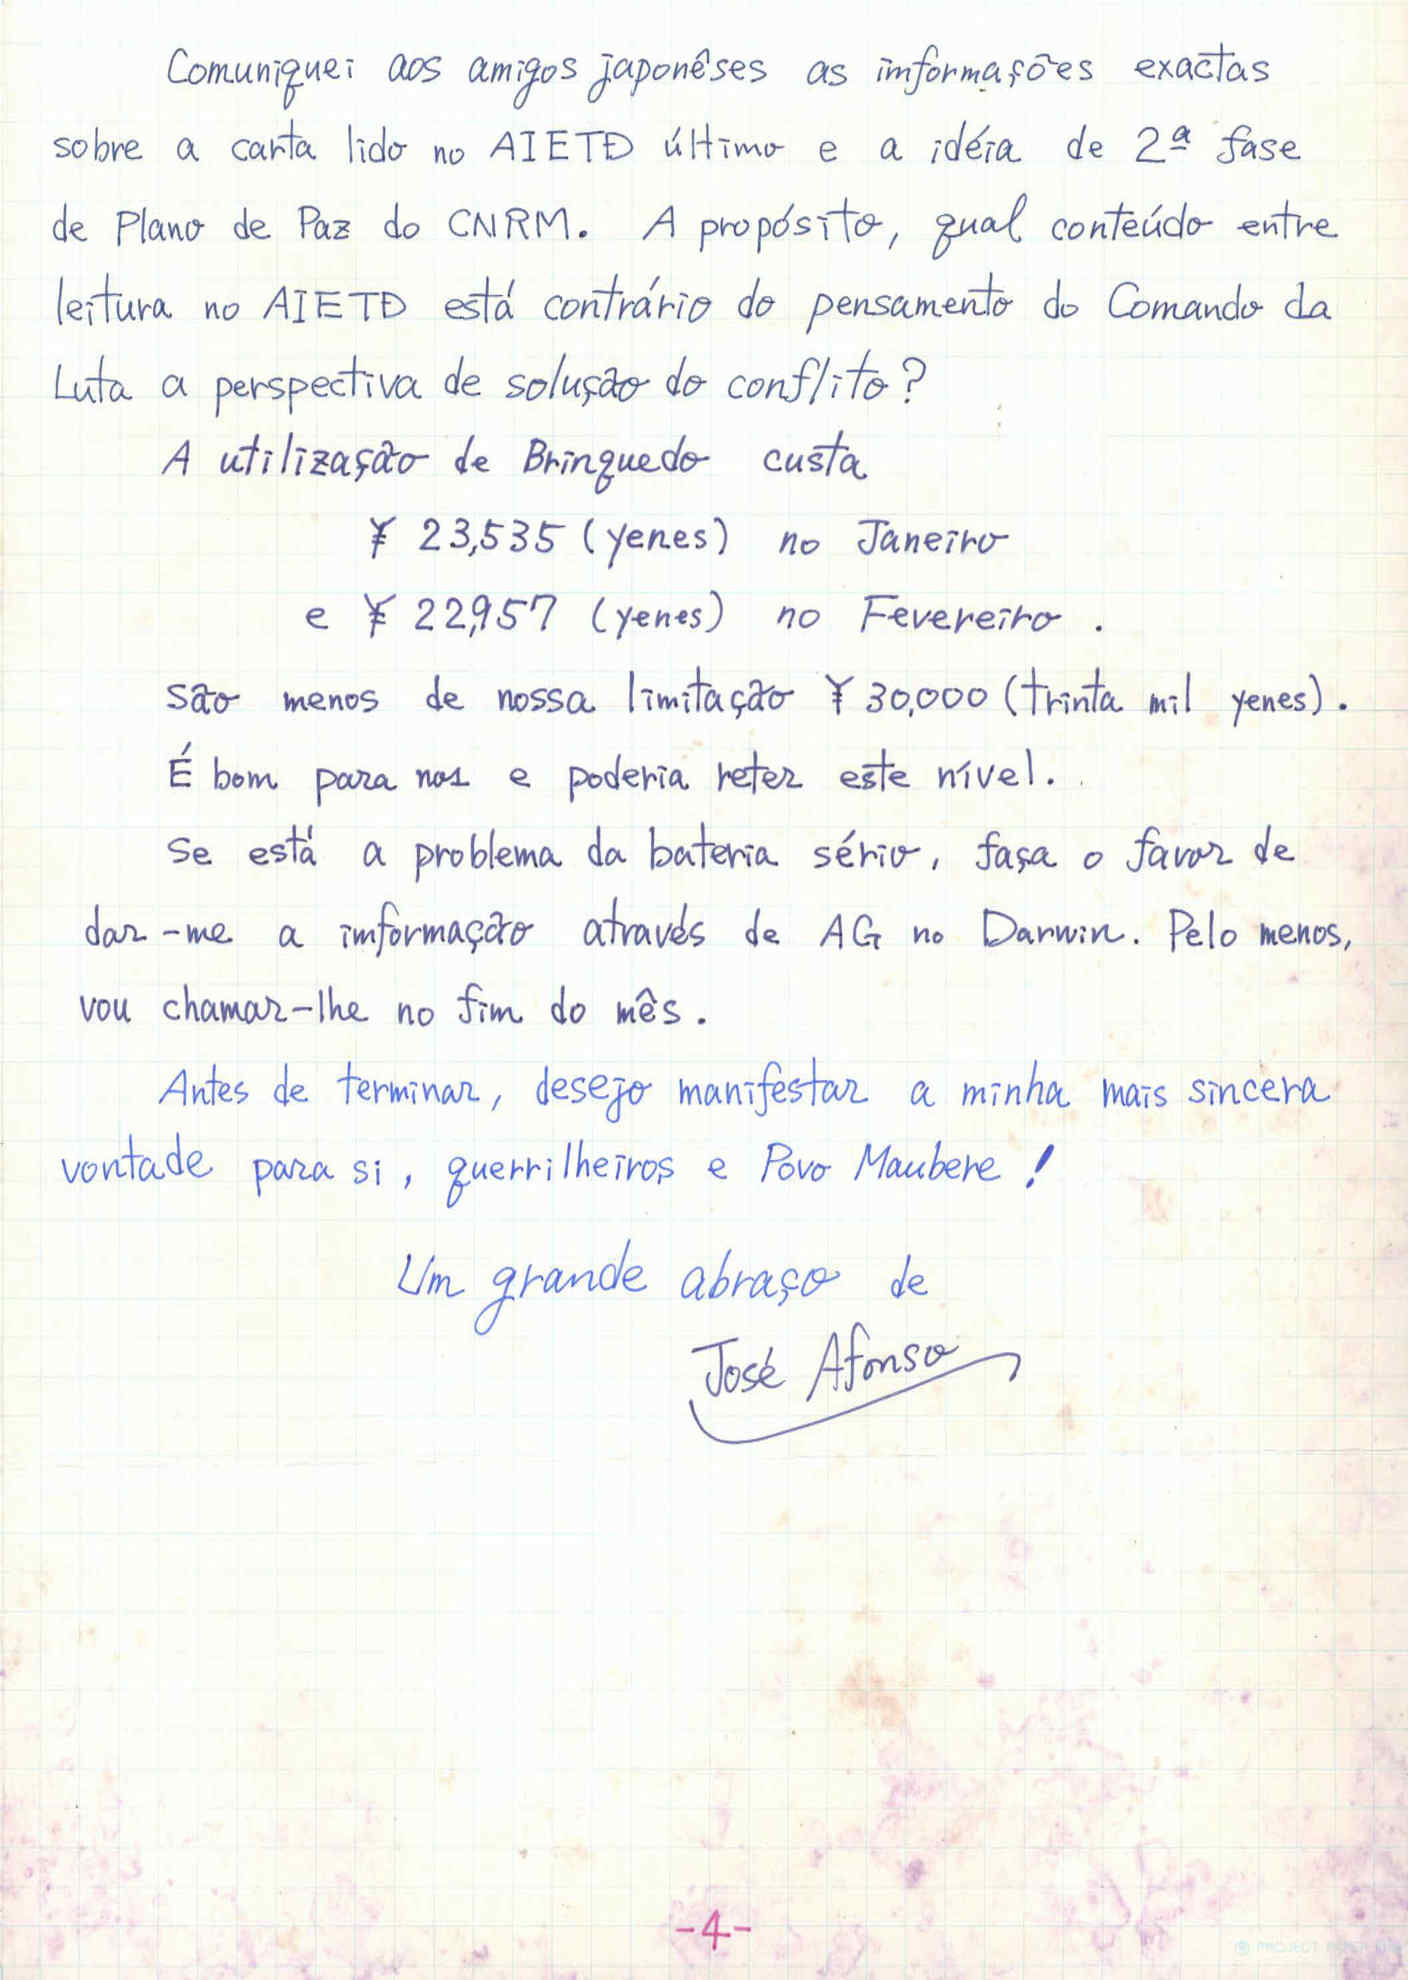 Comuniquei aos amigos japonêses as informações exactas
sobre a carta lido no AIETD último e a idéia de 2ª fase
de Plano de Paz do CNRM. A propósito, qual conteúdo entre
leitura no AIETD está contrário do pensamento do Comando da
Luta a perspectiva de solução do conflito?
A utilização de Brinquedo custa
¥ 23,535 (yenes) no Janeiro
e ¥ 22,957 (yenes) no Fevereiro.
São menos de nossa limitação ¥ 30,000 (trinta mil yenes).
É bom para nos e poderia reter este nível.
Se está a problema da bateria sério, faça o favor de
dar-me a informação através de AG no Darwin. Pelo menos,
vou chamar-lhe no fim do mês.
Antes de terminar, desejo manifestar a minha mais sincera
vontade para si, guerrilheiros e Povo Maubere!
Um grande abraço de
José Afonso
-4-